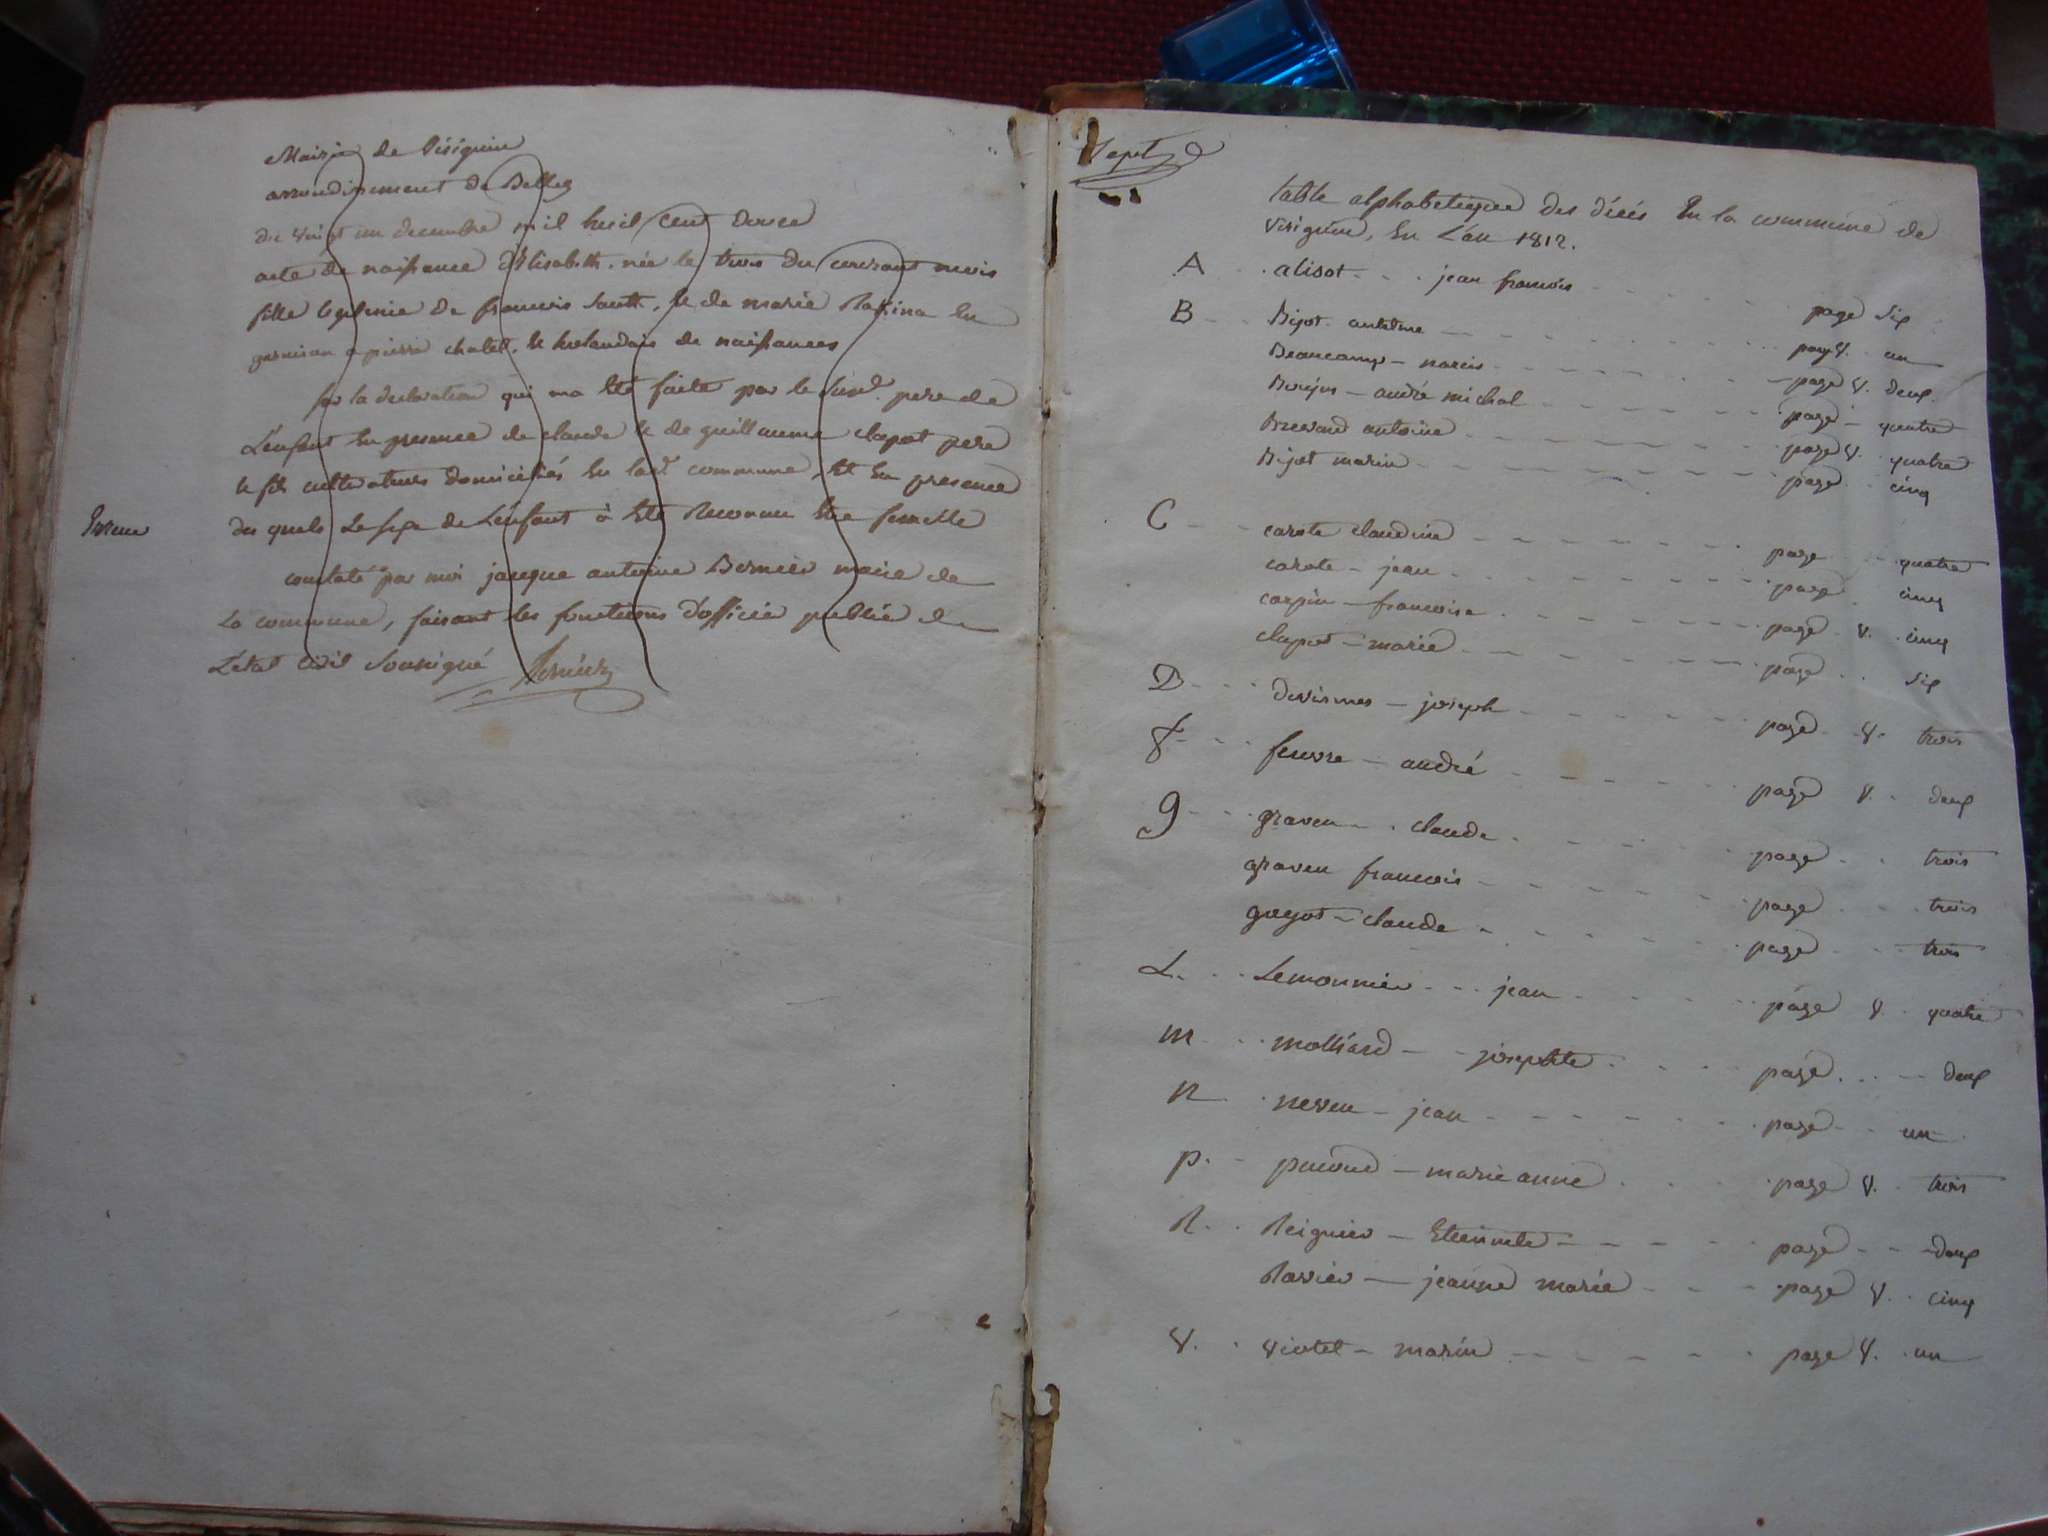 Mairie de Virignin
arrondissement de Belley
du vingt un decembre mil huit cent douze
acte de naissance d'Elisabeth née le trois du courant mois
fille legitime de francois Et de marie En
garnison a pierre chatel, Et holandais de naissances
Sur la declaration qui ma Eté faite par le Susd. pere de
L'enfant En presence de claude Et de guillaume clapot pere
Et fils cultivateurs domiciliés En lad. commune, Et En presence
Erreur
des quels Le sexe de L'enfant à Eté Reconnu Etre femelle
constaté par moi jacque antoine Bernier maire de
La commune, faisant les fonctions d'officié public de
L'etat Civil Soussigné Bernier
Sept
table alphabetique des décés En la commune de
virignin, En L'an 1812.
A alisot jean francois page six
B Bijot antelme page V. un
Beaucamp narcis page V. deux
andré michal page quatre
antoine page V. quatre
Bijot marin page cinq
C carote claudine page quatre
carote jean page cinq
carpin francoise page V. cinq
clapot marie page six
D devismes joseph page V. trois
F feuvre andré page V. deux
g graven claude page trois
graven francois page trois
goyot claude page trois
L. Lemonnier jean page V. quatre
m molliard josephte page deux
n neveu jean page un
p. marie anne page V. trois
R. Reignier Etiennette page deux
Ravier jeanne marie page V. cinq
V. Viotet marin page V. un